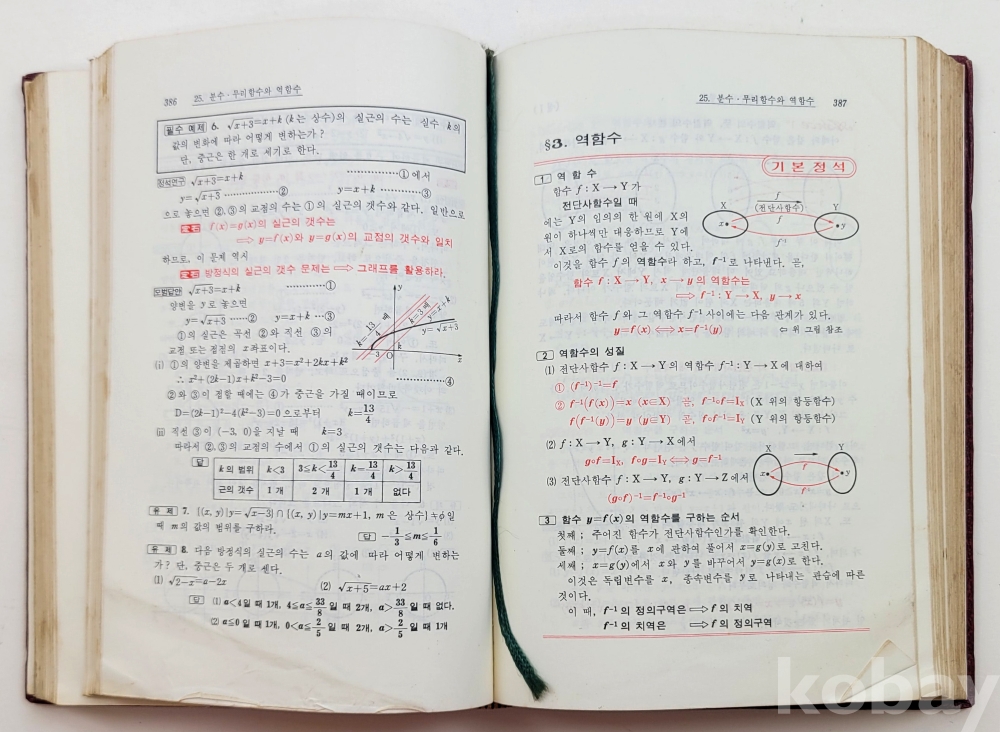 386 25. 분수·무리함수와 역함수
필수 예제 6. √x+3=x+k (k는 상수)의 실근의 수는 실수 k의
값의 변화에 따라 어떻게 변하는가?
단, 중근은 한 개로 세기로 한다.
정석연구 √x+3=x+k ……………………①에서
y=√x+3 ……………② y=x+k ……………③
으로 놓으면 ②, ③의 교점의 수는 ①의 실근의 갯수와 같다. 일반으로
정석 f(x)=g(x)의 실근의 갯수는
⟹ y=f(x)와 y=g(x)의 교점의 갯수와 일치
하므로, 이 문제 역시
정석 방정식의 실근의 갯수 문제는 ⟹ 그래프를 활용하라.
모범답안 √x+3=x+k ……………①
양변을 y로 놓으면
y=√x+3 ……② y=x+k …③
①의 실근은 곡선 ②와 직선 ③의
교점 또는 접점의 x좌표이다.
k=13/4 때
k=3 때
y=x+k
y=√x+3
y
-3 O k x
(i) ①의 양변을 제곱하면 x+3=x²+2kx+k²
∴ x²+(2k-1)x+k²-3=0 ……………④
②와 ③이 접할 때에는 ④가 중근을 가질 때이므로
D=(2k-1)²-4(k²-3)=0으로부터 k=13/4
(ii) 직선 ③이 (-3, 0)을 지날 때 k=3
따라서 ②, ③의 교점의 수에서 ①의 실근의 갯수는 다음과 같다.
답
k의 범위 k<3 3≦k<13/4 k=13/4 k>13/4
근의 갯수 1개 2개 1개 없다
유제 7. {(x, y)|y=√x-3}∩{(x, y)|y=mx+1, m은 상수}≠φ일
때 m의 값의 범위를 구하라.
답 -1/3≦m≦1/6
유제 8. 다음 방정식의 실근의 수는 a의 값에 따라 어떻게 변하는
가? 단, 중근은 두 개로 센다.
(1) √2-x=a-2x (2) √x+5=ax+2
답 (1) a<4일 때 1개, 4≦a≦33/8일 때 2개, a>33/8일 때 없다.
(2) a≦0일 때 1개, 0<a≦2/5일 때 2개, a>2/5일 때 1개
25. 분수·무리함수와 역함수 387
§3. 역함수
기본정석
1 역함수
함수 f : X→Y가
전단사함수일 때
에는 Y의 임의의 한 원에 X의
원이 하나씩만 대응하므로 Y에
서 X로의 함수를 얻을 수 있다.
f
(전단사함수)
X f Y
x y
f⁻¹
이것을 함수 f의 역함수라 하고, f⁻¹로 나타낸다. 곧,
함수 f : X→Y, x→y의 역함수는
⟹ f⁻¹ : Y→X, y→x
따라서 함수 f와 그 역함수 f⁻¹사이에는 다음 관계가 있다.
y=f(x)⟺x=f⁻¹(y) ⇦ 위 그림 참조
2 역함수의 성질
(1) 전단사함수 f : X→Y의 역함수 f⁻¹ : Y→X에 대하여
① (f⁻¹)⁻¹=f
② f⁻¹(f(x))=x (x∈X) 곧, f⁻¹∘f=I_X (X 위의 항등함수)
f(f⁻¹(y))=y (y∈Y) 곧, f∘f⁻¹=I_Y (Y 위의 항등함수)
(2) f : X→Y, g : Y→X에서
g∘f=I_X, f∘g=I_Y⟺g=f⁻¹
(3) 전단사함수 f : X→Y, g : Y→Z에서
(g∘f)⁻¹=f⁻¹∘g⁻¹
X Y
x f y
f⁻¹
3 함수 y=f(x)의 역함수를 구하는 순서
첫째; 주어진 함수가 전단사함수인가를 확인한다.
둘째; y=f(x)를 x에 관하여 풀어서 x=g(y)로 고친다.
세째; x=g(y)에서 x와 y를 바꾸어서 y=g(x)로 한다.
이것은 독립변수를 x, 종속변수를 y로 나타내는 관습에 따른
것이다.
이 때, f⁻¹의 정의구역은 ⟹ f의 치역
f⁻¹의 치역은 ⟹ f의 정의구역
kobay